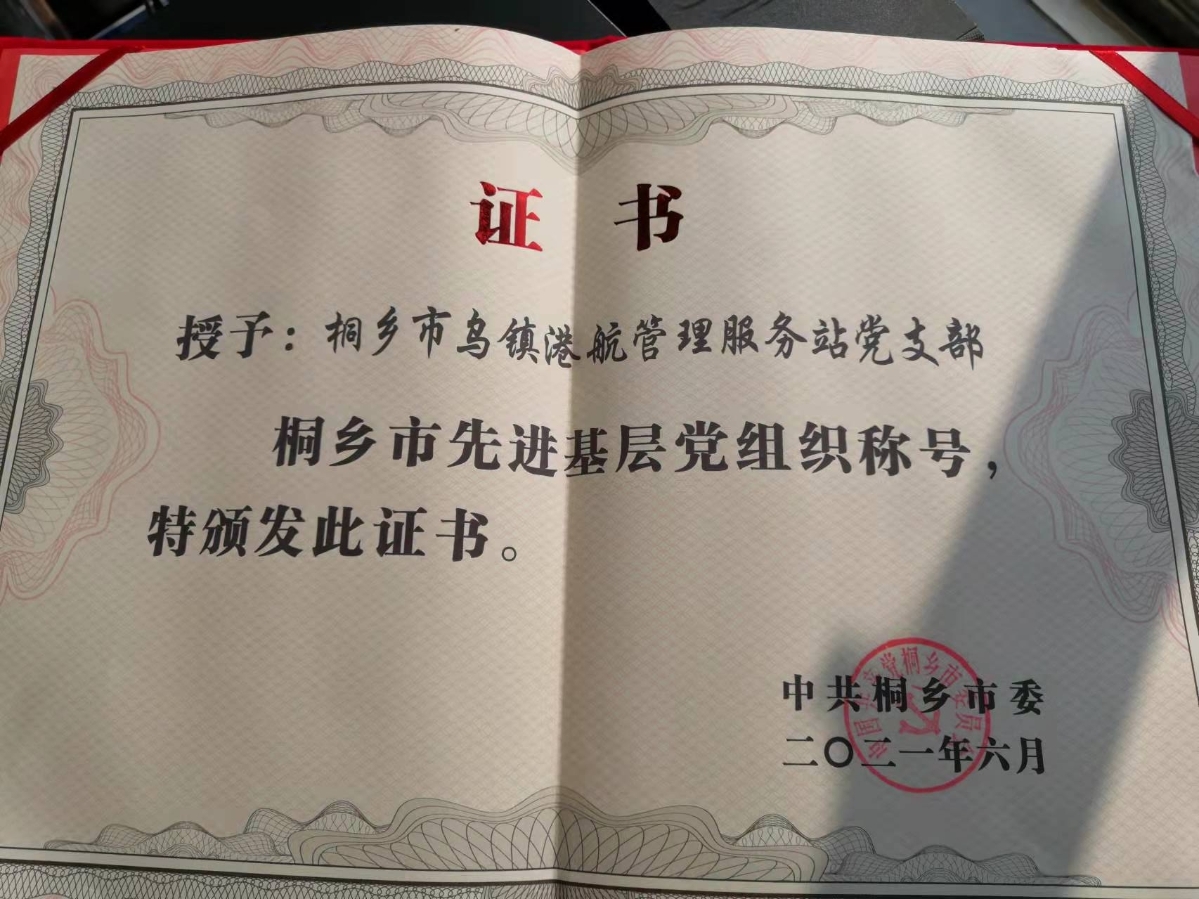 证书
授予：桐乡市乌镇港航管理服务站党支部
桐乡市先进基层党组织称号，
特颁发此证书。
中共桐乡市委
二〇二一年六月
中国共产党桐乡市委员会